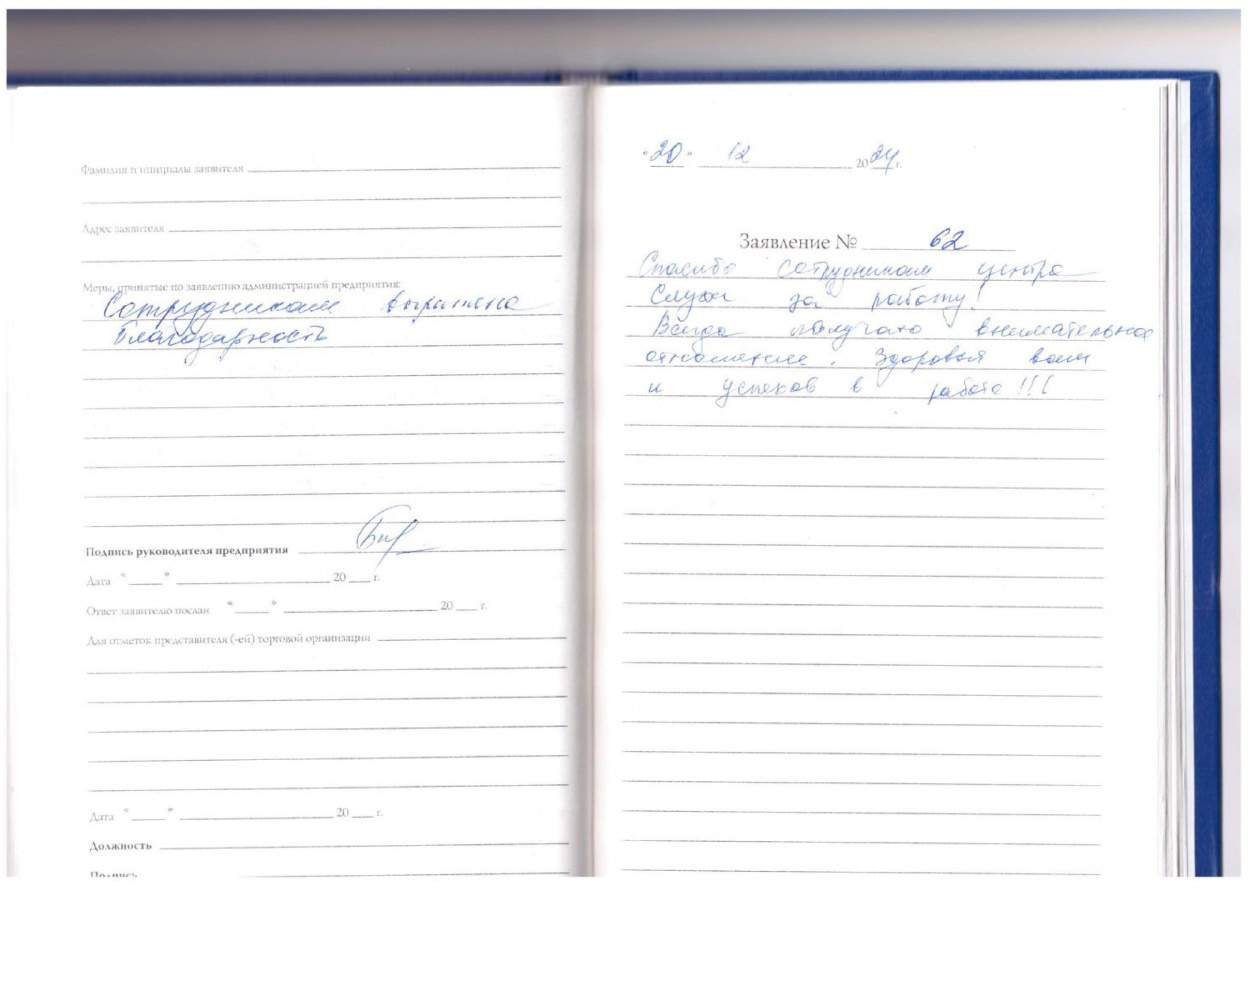 Фамилия и инициалы заявителя
Адрес заявителя
Меры, принятые по заявлению администрацией предприятия:
Сотрудникам выражена
благодарность
Подпись руководителя предприятия
Дата " " 20 г.
Ответ заявителю послан " " 20 г.
Для отметок представителя (-ей) торговой организации
Дата " " 20 г.
Должность
Подпись
"20" 12 2024 г.
Заявление № 62
Спасибо сотрудникам центра
Слуха за работу!
Всегда получаю внимательное
отношение. Здоровья вам
и успехов в работе!!!